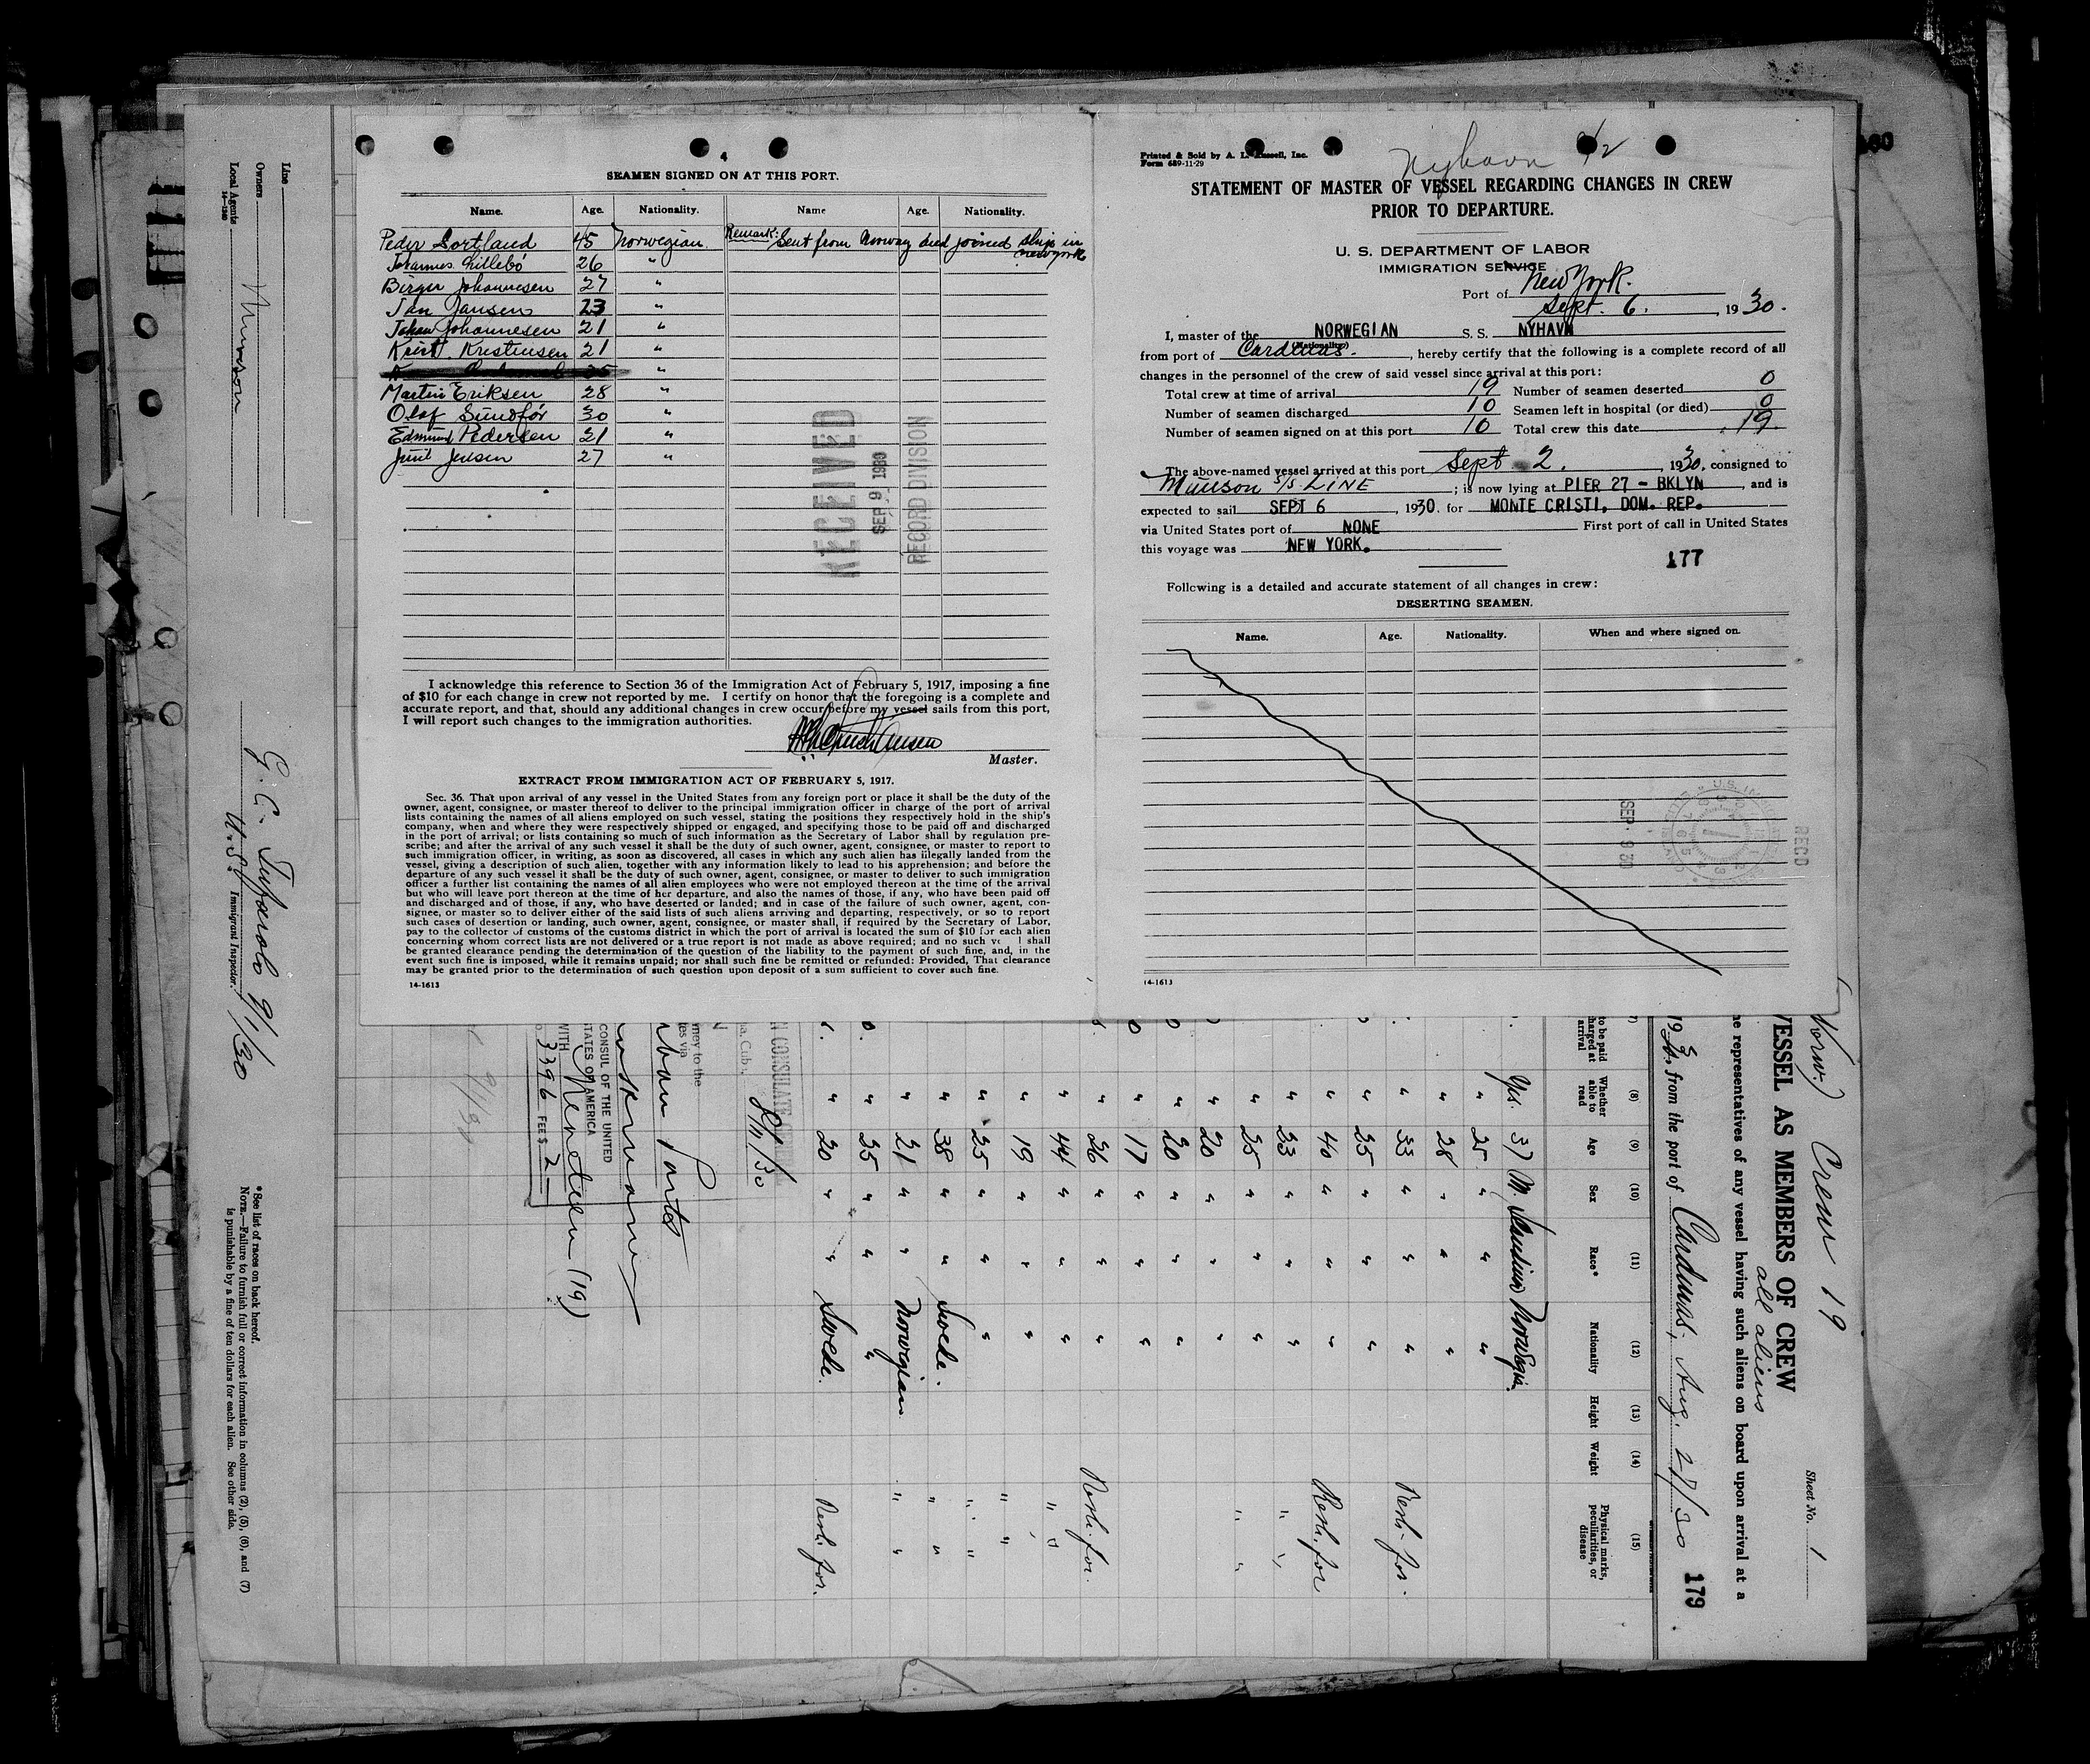 4
SEAMEN SIGNED ON AT THIS PORT.
Name. Age. Nationality. Name Age. Nationality.
Peder Sortland 45 Norwegian. Remark: Sent from Norway and joined ship in New York
Johannes Lillebö 26 "
Birger Johannesen 27 "
Jan Jansen 23 "
Johan Johannesen 21 "
Krist. Kristensen 21 "
25 "
Martin Eriksen 28 "
Olaf Sundför 30 "
Edmund Pedersen 21 "
Juul Jensen 27 "
RECEIVED
SEP 9 1930
RECORD DIVISION
I acknowledge this reference to Section 36 of the Immigration Act of February 5, 1917, imposing a fine
of $10 for each change in crew not reported by me. I certify on honor that the foregoing is a complete and
accurate report, and that, should any additional changes in crew occur before my vessel sails from this port,
I will report such changes to the immigration authorities.
Master.
EXTRACT FROM IMMIGRATION ACT OF FEBRUARY 5, 1917.
Sec. 36. That upon arrival of any vessel in the United States from any foreign port or place it shall be the duty of the
owner, agent, consignee, or master thereof to deliver to the principal immigration officer in charge of the port of arrival
lists containing the names of all aliens employed on such vessel, stating the positions they respectively hold in the ship's
company, when and where they were respectively shipped or engaged, and specifying those to be paid off and discharged
in the port of arrival; or lists containing so much of such information as the Secretary of Labor shall by regulation pre-
scribe; and after the arrival of any such vessel it shall be the duty of such owner, agent, consignee, or master to report to
such immigration officer, in writing, as soon as discovered, all cases in which any such alien has illegally landed from the
vessel, giving a description of such alien, together with any information likely to lead to his apprehension; and before the
departure of any such vessel it shall be the duty of such owner, agent, consignee, or master to deliver to such immigration
officer a further list containing the names of all alien employees who were not employed thereon at the time of the arrival
but who will leave port thereon at the time of her departure, and also the names of those, if any, who have been paid off
and discharged and of those, if any, who have deserted or landed; and in case of the failure of such owner, agent, con-
signee, or master so to deliver either of the said lists of such aliens arriving and departing, respectively, or so to report
such cases of desertion or landing, such owner, agent, consignee, or master shall, if required by the Secretary of Labor,
pay to the collector of customs of the customs district in which the port of arrival is located the sum of $10 for each alien
concerning whom correct lists are not delivered or a true report is not made as above required; and no such ve l shall
be granted clearance pending the determination of the question of the liability to the payment of such fine, and, in the
event such fine is imposed, while it remains unpaid; nor shall such fine be remitted or refunded: Provided, That clearance
may be granted prior to the determination of such question upon deposit of a sum sufficient to cover such fine.
14-1613
Printed & Sold by A. L. Russell, Inc.
Form 689-11-29
Nyhavn 9/2
STATEMENT OF MASTER OF VESSEL REGARDING CHANGES IN CREW
PRIOR TO DEPARTURE.
U. S. DEPARTMENT OF LABOR
IMMIGRATION SERVICE
Port of New York.
Sept. 6. , 1930.
I, master of the NORWEGIAN S. S. NYHAVN
(Nationality)
from port of Cardenas. , hereby certify that the following is a complete record of all
changes in the personnel of the crew of said vessel since arrival at this port:
Total crew at time of arrival 19 Number of seamen deserted 0
Number of seamen discharged 10 Seamen left in hospital (or died) 0
Number of seamen signed on at this port 10 Total crew this date 19.
The above-named vessel arrived at this port Sept 2. , 1930, consigned to
Munson S/S LINE ; is now lying at PIER 27 - BKLYN , and is
expected to sail SEPT 6 , 1930. for MONTE CRISTI, DOM. REP.
via United States port of NONE First port of call in United States
this voyage was NEW YORK.
177
Following is a detailed and accurate statement of all changes in crew:
DESERTING SEAMEN.
Name. Age. Nationality. When and where signed on.
SEP. 9 30
RECD
14-1613
Line
Owners
Munson
Local Agents
14-1240
U.S. Immigrant Inspector.
9/1/30
*See list of races on back hereof.
NOTE.—Failure to furnish full or correct information in columns (2), (5), (6), and (7)
is punishable by a fine of ten dollars for each alien. See other side.
Norw.) Crew 19
Sheet No. 1
VESSEL AS MEMBERS OF CREW
all aliens
he representatives of any vessel having such aliens on board upon arrival at a
1930, from the port of Cardenas, Aug. 27/30
179
7) (8) (9) (10) (11) (12) (13) (14) (15)
to be paid
harged at
arrival
Whether
able to
read
Age
Sex
Race*
Nationality
Height
Weight
Physical marks,
peculiarities, or
disease
Yes. 37 M. Norwegin.
" 25 " " "
" 28 " " "
" 33 " " "
" 35 " " "
" 40 " " "
" 33 " " "
" 25 " " "
" 20 " " "
" 20 " " "
" 17 " " "
" 26 " " "
" 44 " " "
" 19 " " "
" 25 " " "
" 38 " " Swede.
" 21 " " Norwegian
" 35 " " "
" 20 " " Swede.
N CONSULATE GENERAL
8/11/30
na, Cuba
ney to the
es via
CONSUL OF THE UNITED
STATES OF AMERICA
WITH
3396 FEE $ 2
(19)
9/1/30